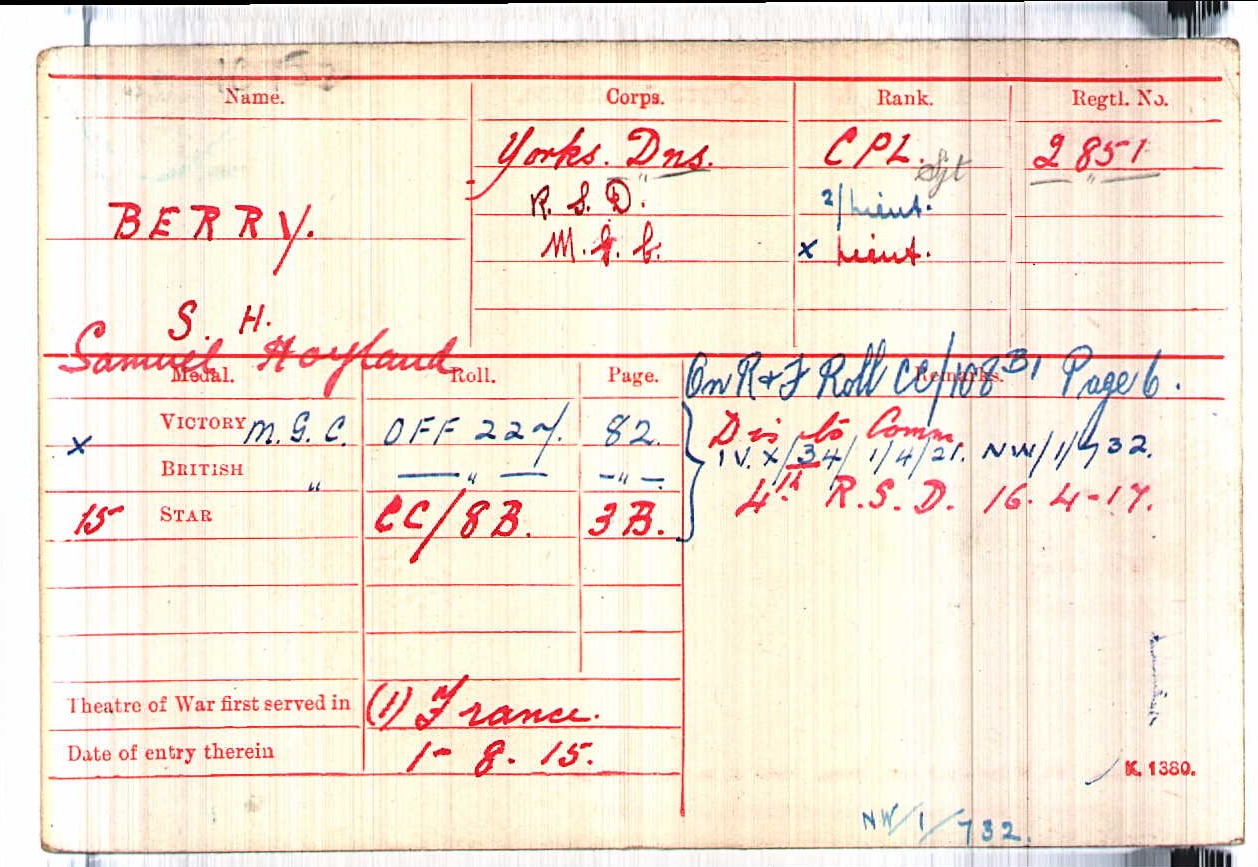 Name. Corps. Rank. Regtl. No.
Yorks. Dns. CPL. Sjt 2851
R. S. D. 2/Lieut.
BERRY. M. G. C. x Lieut.
S. H.
Samuel Hoyland
Medal. Roll. Page. Remarks.
On R & F Roll CC/108 B1 Page 6.
VICTORY M. G. C. OFF 227. 82. Dis to Comm.
x IV. X/34/ 1/4/21. NW/1/732.
BRITISH " — " — — " —
15 STAR CC/8B. 3B. 4th R.S.D. 16-4-17.
Theatre of War first served in (1) France.
Date of entry therein 1-8-15.
K. 1380.
NW/1/732.